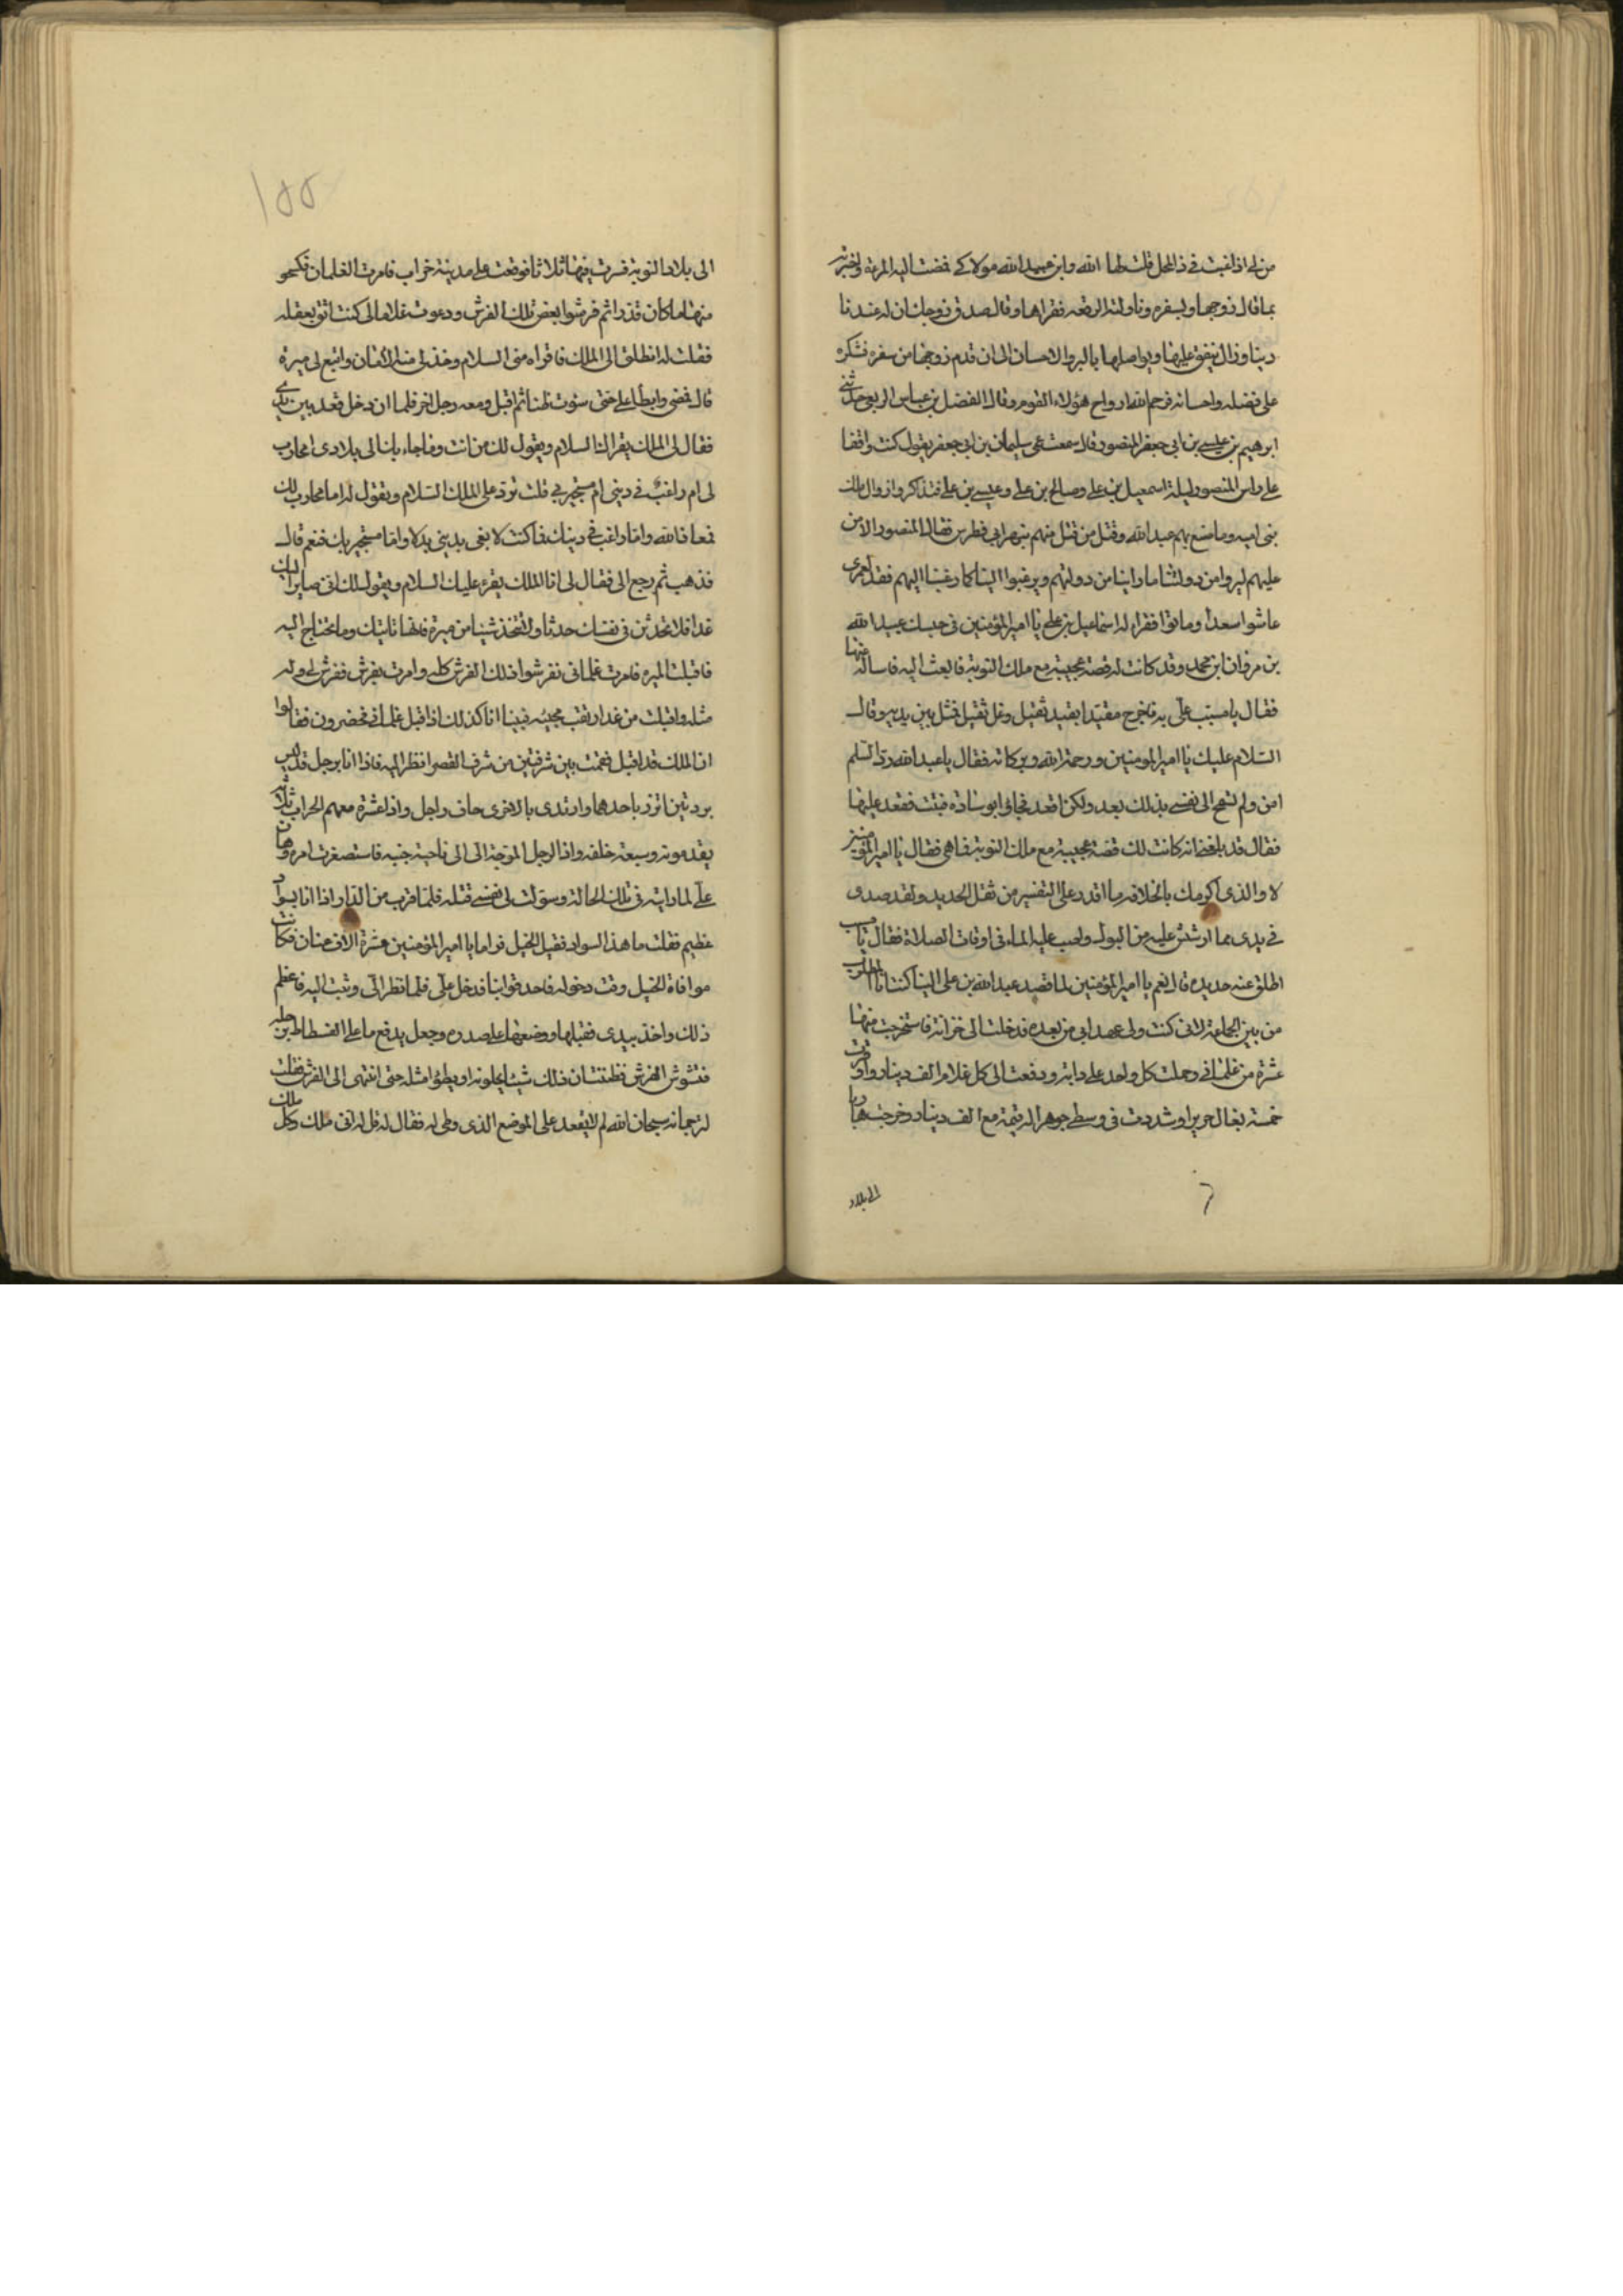 من لي اذا غبت في ذا المحل قلت لها الله وابن عبيد الله مولاكي فمضت اليه المرءة واخبرته
بما قال زوجها وبسفره وناولته الرقعه فقراها وقال صدق زوجك ان له عندنا
دينا وزال ينفق عليها ويواصلها بالبر والاحسان الى ان قدم زوجها من سفره فشكره
على فضله واحسانه فرحم الله ارواح هؤلاء القوم وقال الفضل بن عباس الربعي حدثني
ابرهيم بن عيسى بن ابي جعفر المنصور قال سمعت عمي سليمان بن ابي جعفر يقول كنت واقفا
على راس المنصور ليلة اسمعيل بن علي وصالح بن علي وعيسى بن علي فتذاكروا زوال ملك
بني اميه وما صنع بهم عبد الله وقتل من قتل منهم بنهر ابي فطرس فقال المنصور الا من
عليهم ليروا من دولتنا ما راينا من دولتهم ويرغبوا الينا كما رغبنا اليهم فقد لعمري
عاشوا سعدا وماتوا فقرا له اسماعيل بن علي يا امير المؤمنين في حبسك عبيد الله
بن مروان ابن محمد وقد كانت له قصة عجيبة مع ملك النوبة فابعث اليه فاساله عنها
فقال يا مسيب علي به فاخرج مقيدا بقيد ثقيل وغل ثقيل فمثل بين يديه وقال
السلام عليك يا امير المومنين ورحمة الله وبركاته فقال يا عبد الله رد السلم
امن ولم تسمح الى نفسي بذلك بعد ولكن اقعد فجاؤا بوسادة فثنت فقعد عليها
فقال قد بلغنا انه كانت لك قصة عجيبة مع ملك النوبة فما هي فقال يا امير المؤمنين
لا والذي اكرمك بالخلافه ما اقدر على النفس من ثقل الحديد ولقد صدى
في يدى مما ارشش عليه من البول واصب عليه الماء في اوقات الصلاة فقال يا مسيب
اطلق عنه حديده قال نعم يا امير المؤمنين لما قصد عبد الله بن علي الينا كنت انا المطلوب
من بين الجماعة لاني كنت ولي عهد ابي من بعده فدخلت الى خزانة فاستخرجت منها
عشرة من غلماني وحملت كل واحد على دابة ودفعت الى كل غلام الف دينار واوقرت
خمسة بغال حريرا وشددت في وسطي جوهرا له قيمة مع الف دينار وخرجت هاربا
الى بلاد
١٥٥
الى بلاد النوبة فسرت فيها ثلاثا فوقعت على مدينة خراب فامرت الغلمان فكسحو
منها ما كان قذرا ثم فرشوا بعض تلك الفرش ودعوت غلاما لي كنت اثق بعقله
فقلت له انطلق الى الملك فاقراه مني السلام وخذ لي منه الامان وابتع لي ميرة
قال فمضى وابطأ علي حتى سؤت ظنا ثم اقبل ومعه رجل اخر فلما ان دخل قعد بين يدي
فقال لي الملك يقراك السلام ويقول لك من انت وما جاء بك الى بلادي امحارب
لي ام راغب في ديني ام مستجير بي قلت ترد على الملك السلام وتقول له اما محارب لك
فمعاذ الله واما راغب في دينك فما كنت لابغي بديني بدلا واما مستجير بك فنعم قال
فذهب ثم رجع الى فقال لي ان الملك يقرء عليك السلام ويقول لك اني صاير اليك
غدا فلا تحدثن في نفسك حدثا ولا تتخذ شيئا من ميرة فانها تاتيك وما تحتاج اليه
فاقبلت الميره فامرت غلماني نفرشوا ذلك الفرش كله وامرت بفرش ففرش لي وله
مثله واقبلت من غد ارتقب مجيئه فبينا انا كذلك اذ اقبل غلماني تحضرون فقالوا
ان الملك قد اقبل فقمت بين شرفتين من شرف القصر انظر اليه فاذا انا برجل قد لبس
بردتين اتزر باحدهما وارتدى بالاخرى حاف راجل واذا عشرة معهم الحراب ثلاثة
يقدمونه وسبعة خلفه واذا الرجل الموجه الى الى ناحية جنبه فاستصغرت امره وهان
علي لما رايته في تلك الحالة وسولت لي نفسي قتله فلما قرب من الدار اذا انا بسواد
عظيم فقلت ما هذا السواد فقيل الخيل فوافا يا امير المؤمنين عشرة الاف عنان فكانت
موافاة الخيل وقت دخوله فاحدقوا بنا فدخل علي فلما نظر الي وثبت اليه فاعظم
ذلك واخذ بيدى فقبلها ووضعها على صدره وجعل يدفع ما على الفسطاط برجله
فتشوش الفرش فظننت ان ذلك شيئا يجلونه او يطؤا مثله حتى انتهى الى الفرش فقلت
لترجمانه سبحان الله لم لا يقعد على الموضع الذي وطى له فقال له قل له اني ملك وكل ملك